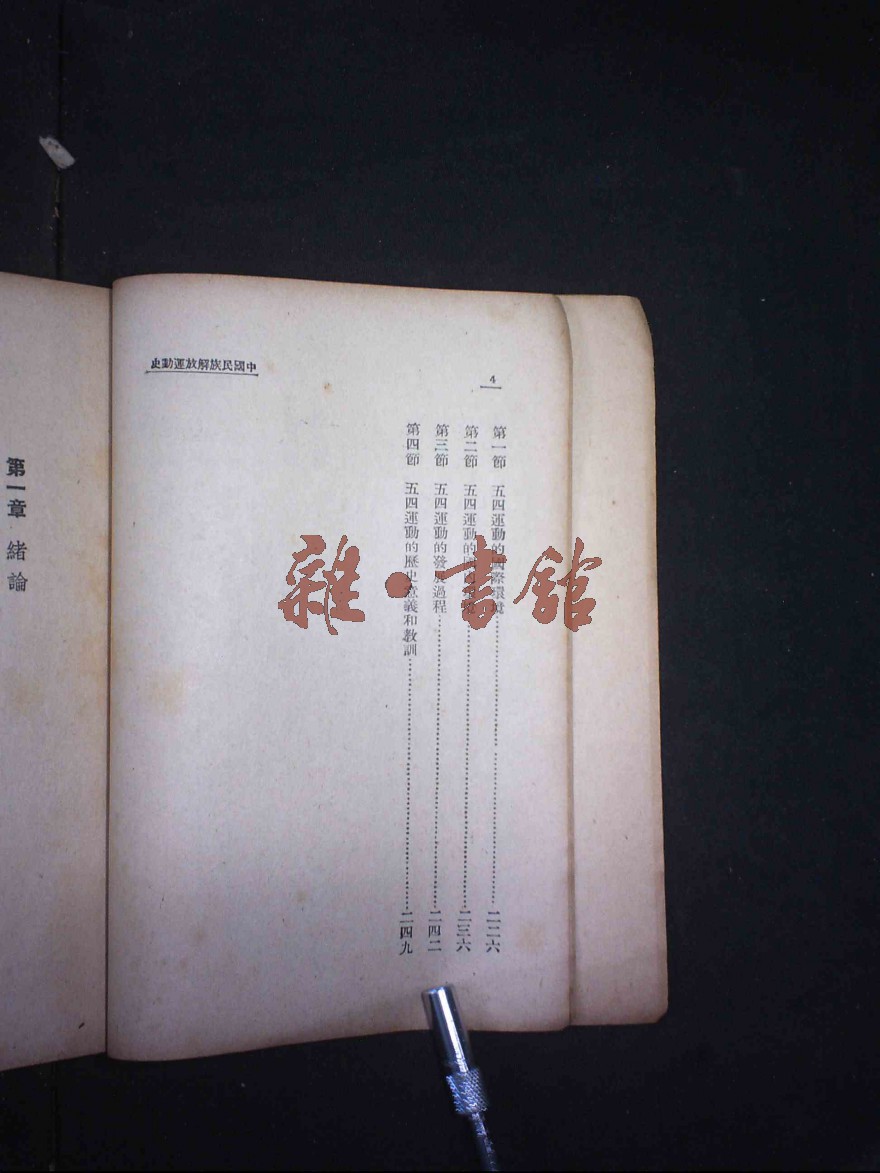 中國民族解放運動史
4
第一節 五四運動的國際環境 二二六
第二節 五四運動的國 二三六
第三節 五四運動的發展過程 二四二
第四節 五四運動的歷史意義和教訓 二四九
第一章 緒論
雜·書館